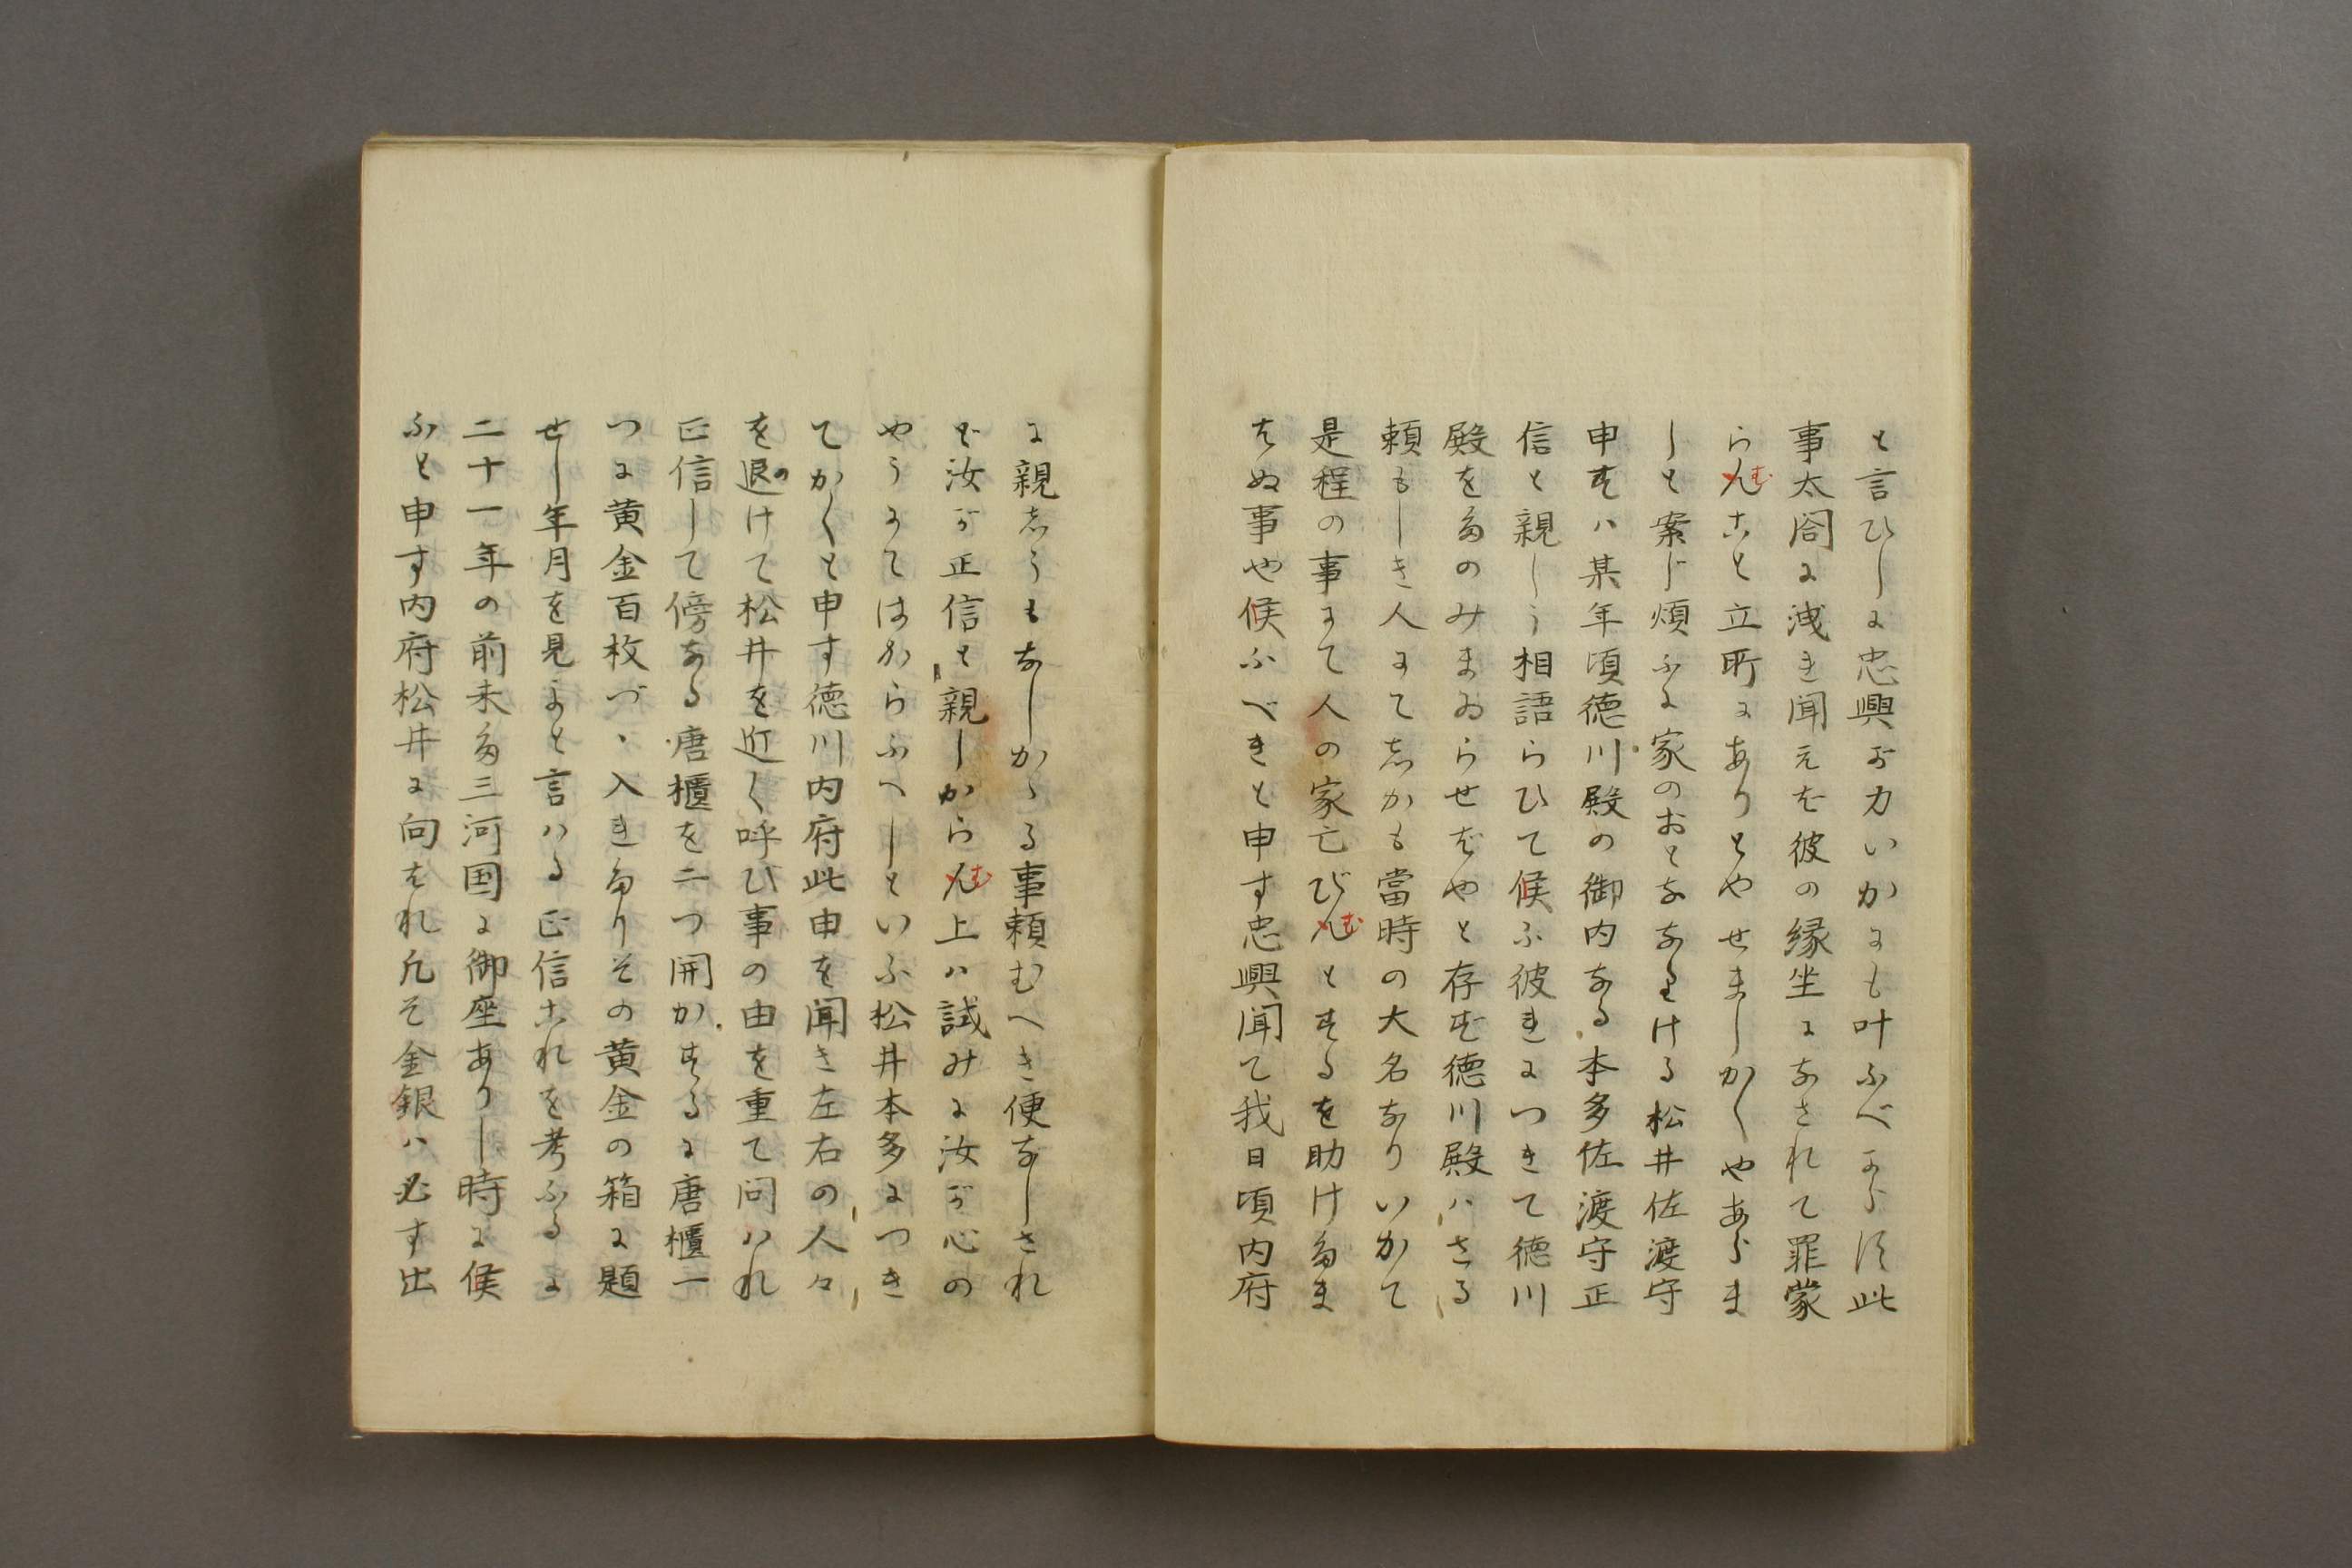 と言ひしに忠興が力いかにも叶ふべからす此
事太閤に洩き聞えを彼の縁坐になされて罪蒙
らんむこと立所にありとやせましかくやあらま
しと案じ煩ふに家のおとなゝりける松井佐渡守
申すハ某年頃徳川殿の御内なる本多佐渡守正
信と親しう相語らひて候ふ彼れにつきて徳川
殿をたのみまゐらせばやと存ず徳川殿ハさる
頼もしき人にてしかも當時の大名なりいかて
是程の事にて人の家亡びんむとするを助けたま
はぬ事や候ふべきと申す忠興聞て我日頃内府
に親しうもなしかゝる事頼むへき便なしされ
ど汝が正信と親しからんむ上ハ試みに汝が心の
やうにてはからふへしといふ松井本多につき
てかくと申す徳川内府此由を聞き左右の人々
を退のけて松井を近く呼び事の由を重て問ハれ
正信して傍なる唐櫃を二つ開かするに唐櫃一
つに黄金百枚づゝ入れたりその黄金の箱に題
せし年月を見よと言ハる正信これを考ふるに
二十一年の前未た三河国に御座ありし時に候
ふと申す内府松井に向はれ凡そ金銀ハ必す出